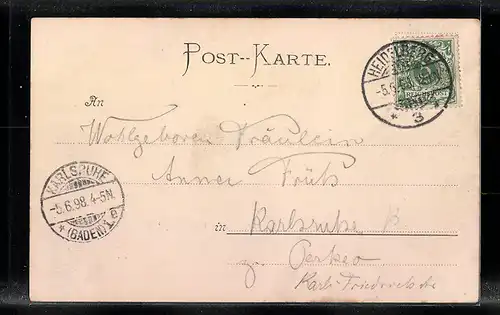 POST-KARTE.
HEIDELBERG
-5.6.
* 3 *
An
Wohlgeboren Fräulein
Anna Früh
KARLSRUHE
-5.6.98.4-5N.
* (BADEN) 1.e
in Karlsruhe B
z. Perkeo
Karl-Friedrichstr